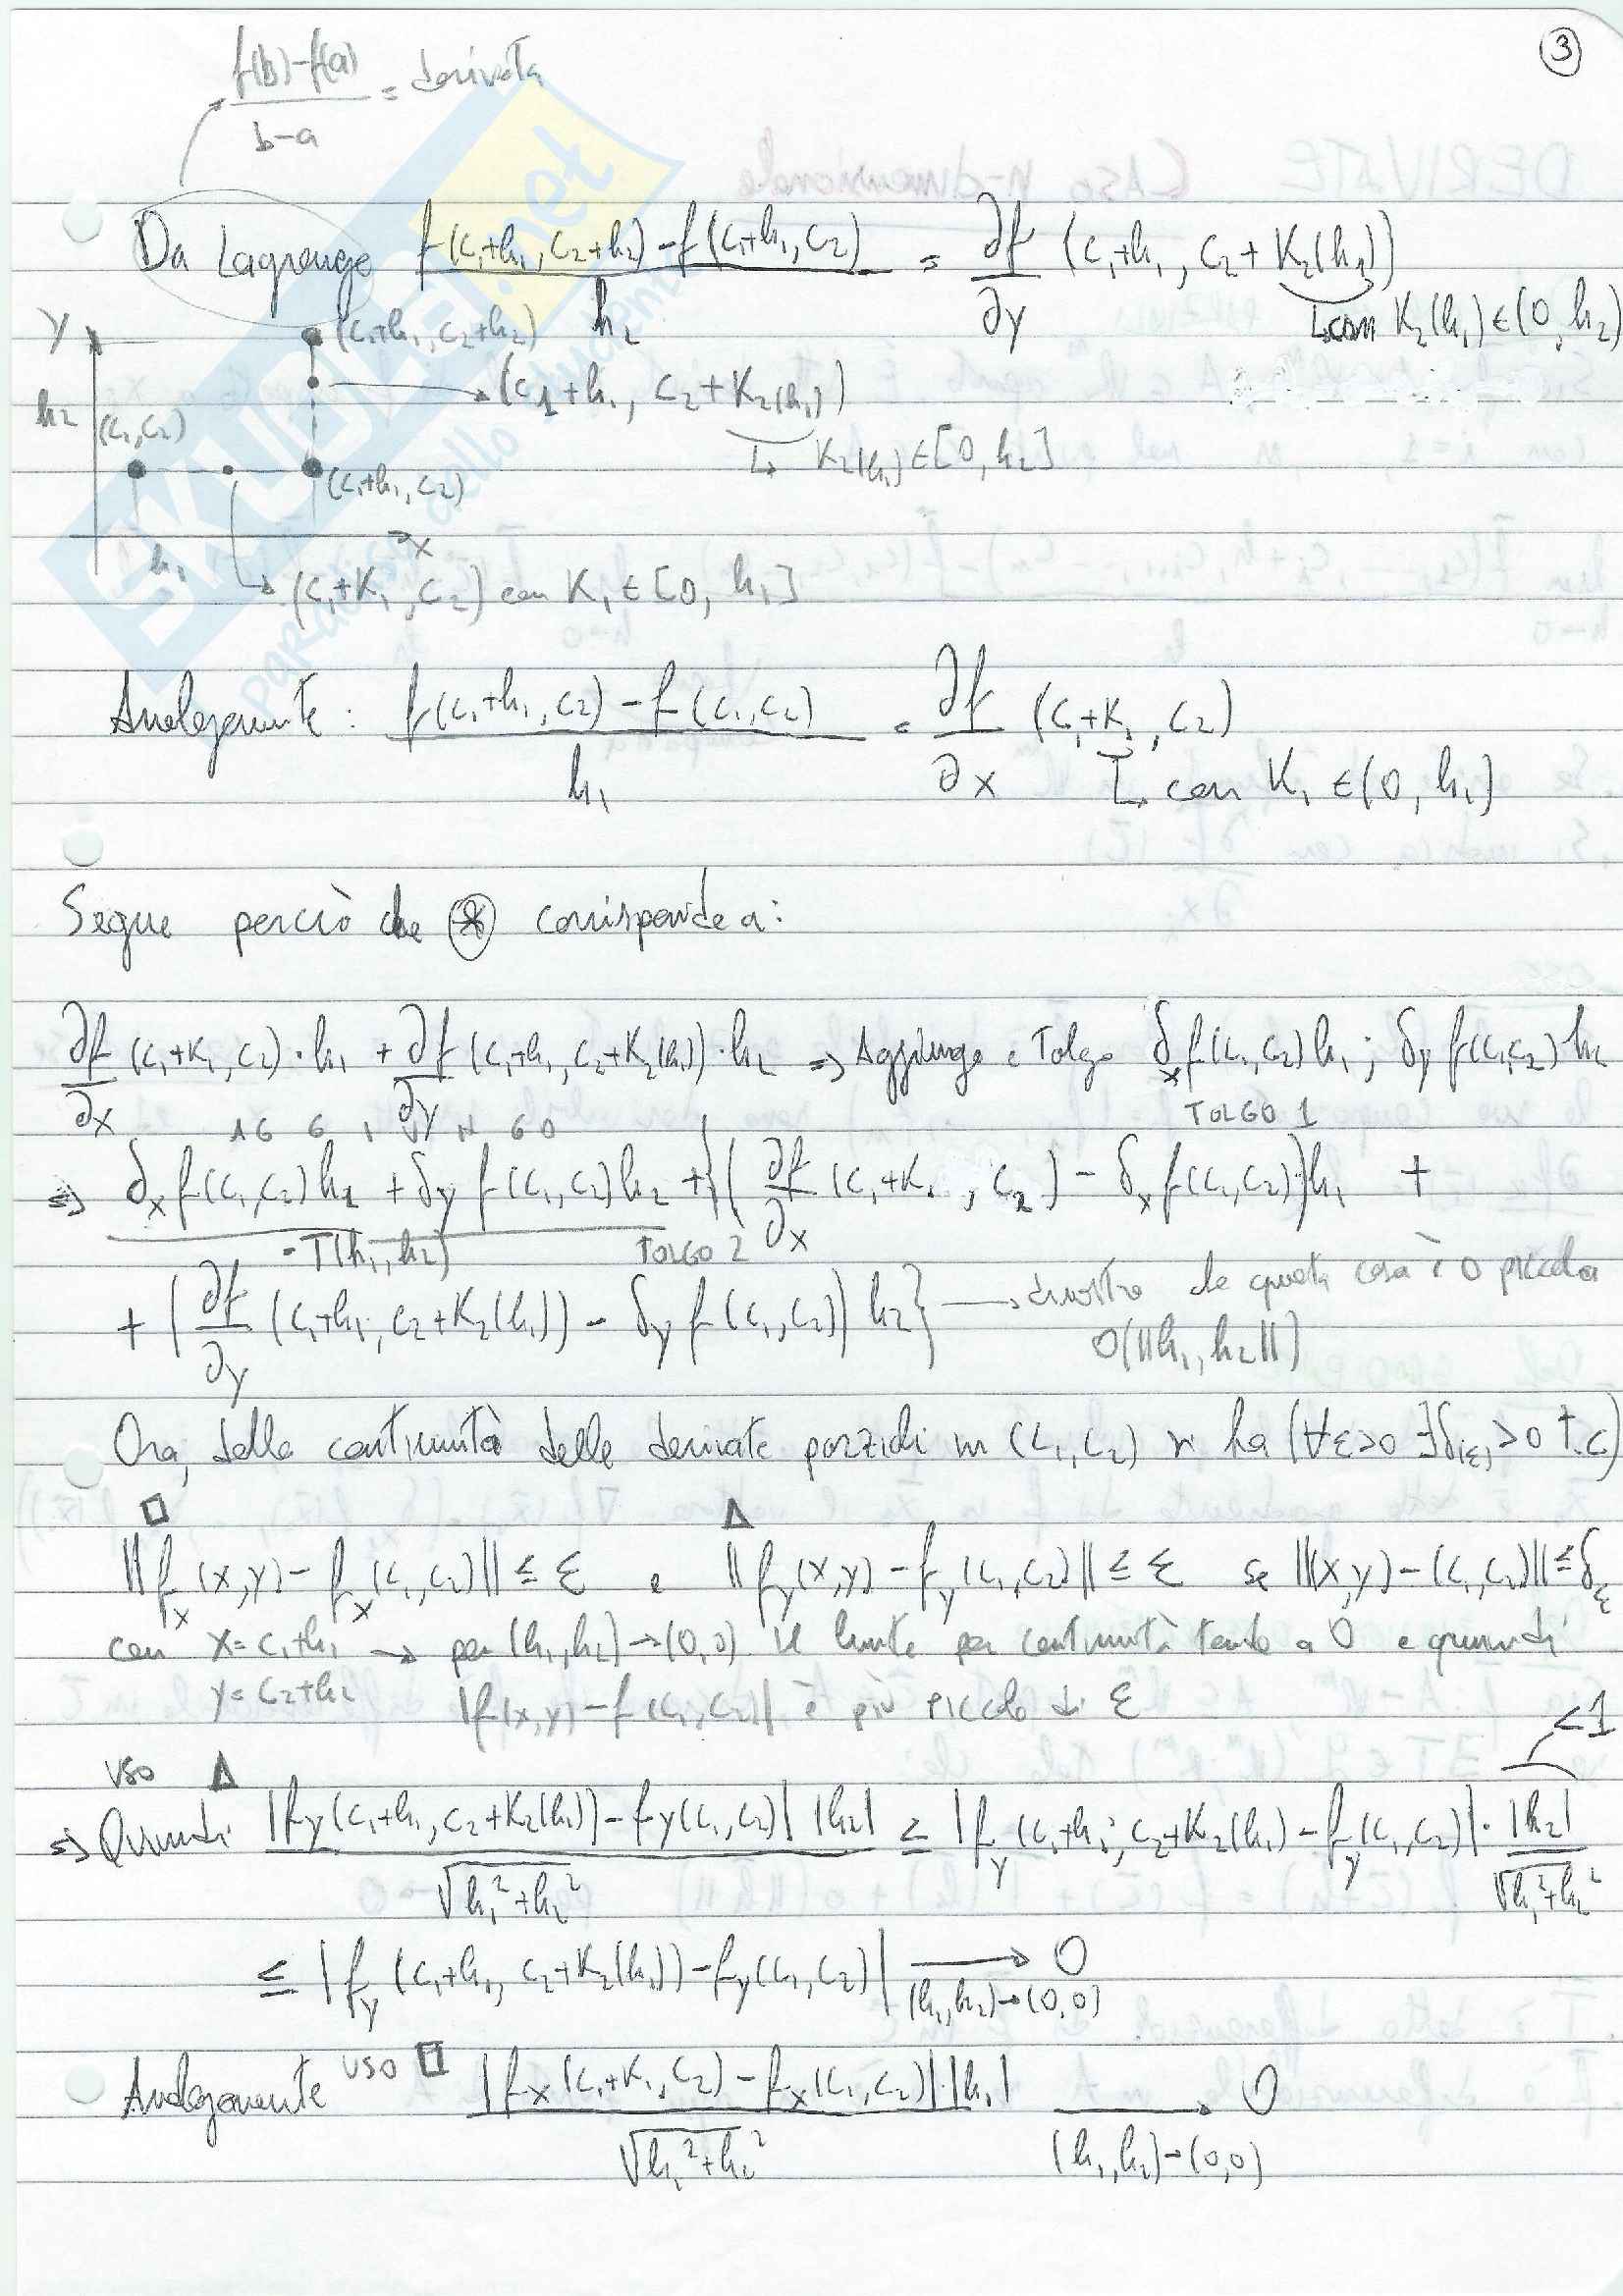 3
f(b)-f(a) / b-a = derivata
Da Lagrange f(c₁+h₁, c₂+h₂) - f(c₁+h₁, c₂) / h₂ = ∂f/∂y (c₁+h₁, c₂+K₂(h₁))
↳ con K₂(h₁) ∈ (0, h₂)
y
(c₁+h₁, c₂+h₂)
h₂
(c₁+h₁, c₂+K₂(h₁))
(c₁, c₂)
↳ K₂(h₁) ∈ [0, h₂]
(c₁+h₁, c₂)
x
h₁
(c₁+K₁, c₂) con K₁ ∈ [0, h₁]
Analogamente: f(c₁+h₁, c₂) - f(c₁, c₂) / h₁ = ∂f/∂x (c₁+K₁, c₂)
↳ con K₁ ∈ (0, h₁)
Segue perciò che ⊛ corrisponde a:
∂f/∂x (c₁+K₁, c₂)·h₁ + ∂f/∂y (c₁+h₁, c₂+K₂(h₁))·h₂ ⇒ Aggiungo e Tolgo δₓf(c₁, c₂)h₁; δy f(c₁c₂)h₂
AGGIUNGO
TOLGO 1
⇒ δₓf(c₁,c₂)h₁ + δy f(c₁,c₂)h₂ + {(∂f/∂x (c₁+K₁, c₂) - δₓf(c₁,c₂))h₁ +
= T(h₁,h₂)
TOLGO 2
+ (∂f/∂y (c₁+h₁, c₂+K₂(h₁)) - δy f(c₁,c₂)) h₂} → dimostro che questa cosa è o piccolo
o(||h₁, h₂||)
Ora, dalla continuità delle derivate parziali in (c₁,c₂) si ha (∀ε>0 ∃δ(ε)>0 t.c)
□ Δ
||fₓ(x,y) - fₓ(c₁,c₂)|| ≤ ε e ||fy(x,y) - fy(c₁,c₂)|| ≤ ε se ||(x,y) - (c₁,c₂)|| ≤ δε
con x = c₁+h₁ → per (h₁,h₂)→(0,0) il limite per continuità tende a 0 e quindi
y = c₂+h₂ |f(x,y) - f(c₁,c₂)| è più piccolo di ε
<1
USO Δ
⇒ Quindi |fy(c₁+h₁, c₂+K₂(h₁)) - fy(c₁,c₂)| |h₂| / √h₁²+h₂² ≤ |fy(c₁+h₁, c₂+K₂(h₁) - fy(c₁,c₂)| · |h₂| / √h₁²+h₂²
≤ |fy(c₁+h₁, c₂+K₂(h₁)) - fy(c₁,c₂)| → 0
(h₁,h₂)→(0,0)
Analogamente USO □ |fₓ(c₁+K₁, c₂) - fₓ(c₁,c₂)| |h₁| / √h₁²+h₂² → 0
(h₁,h₂)→(0,0)
SKUOLA.net
paradiso dello studente